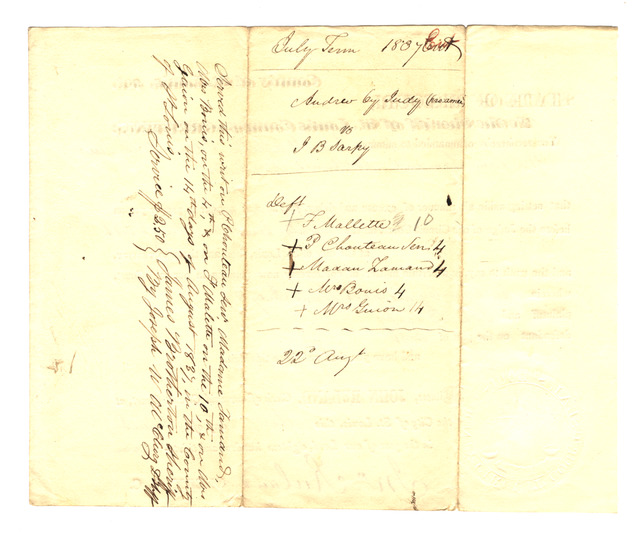 Served this writ on P Chouteau Senr, Madame Lamand,
Mrs Bouis, on the 4th, & on F Malette on the 10th & on Mrs
Guion on the 14th days of August 1837, in the County
of St Louis
Service $2.50 James Brotherton Sheriff
By Joseph W McClurg Dep
July Term 1837
Andrew by Judy
vs
J B Sarpy
Deft
+ F Mallette 10
+ P Chouteau Sen 4
+ Madam Lamand 4
+ Mrs Bouis 4
+ Mrs Guion 14
22d Augt